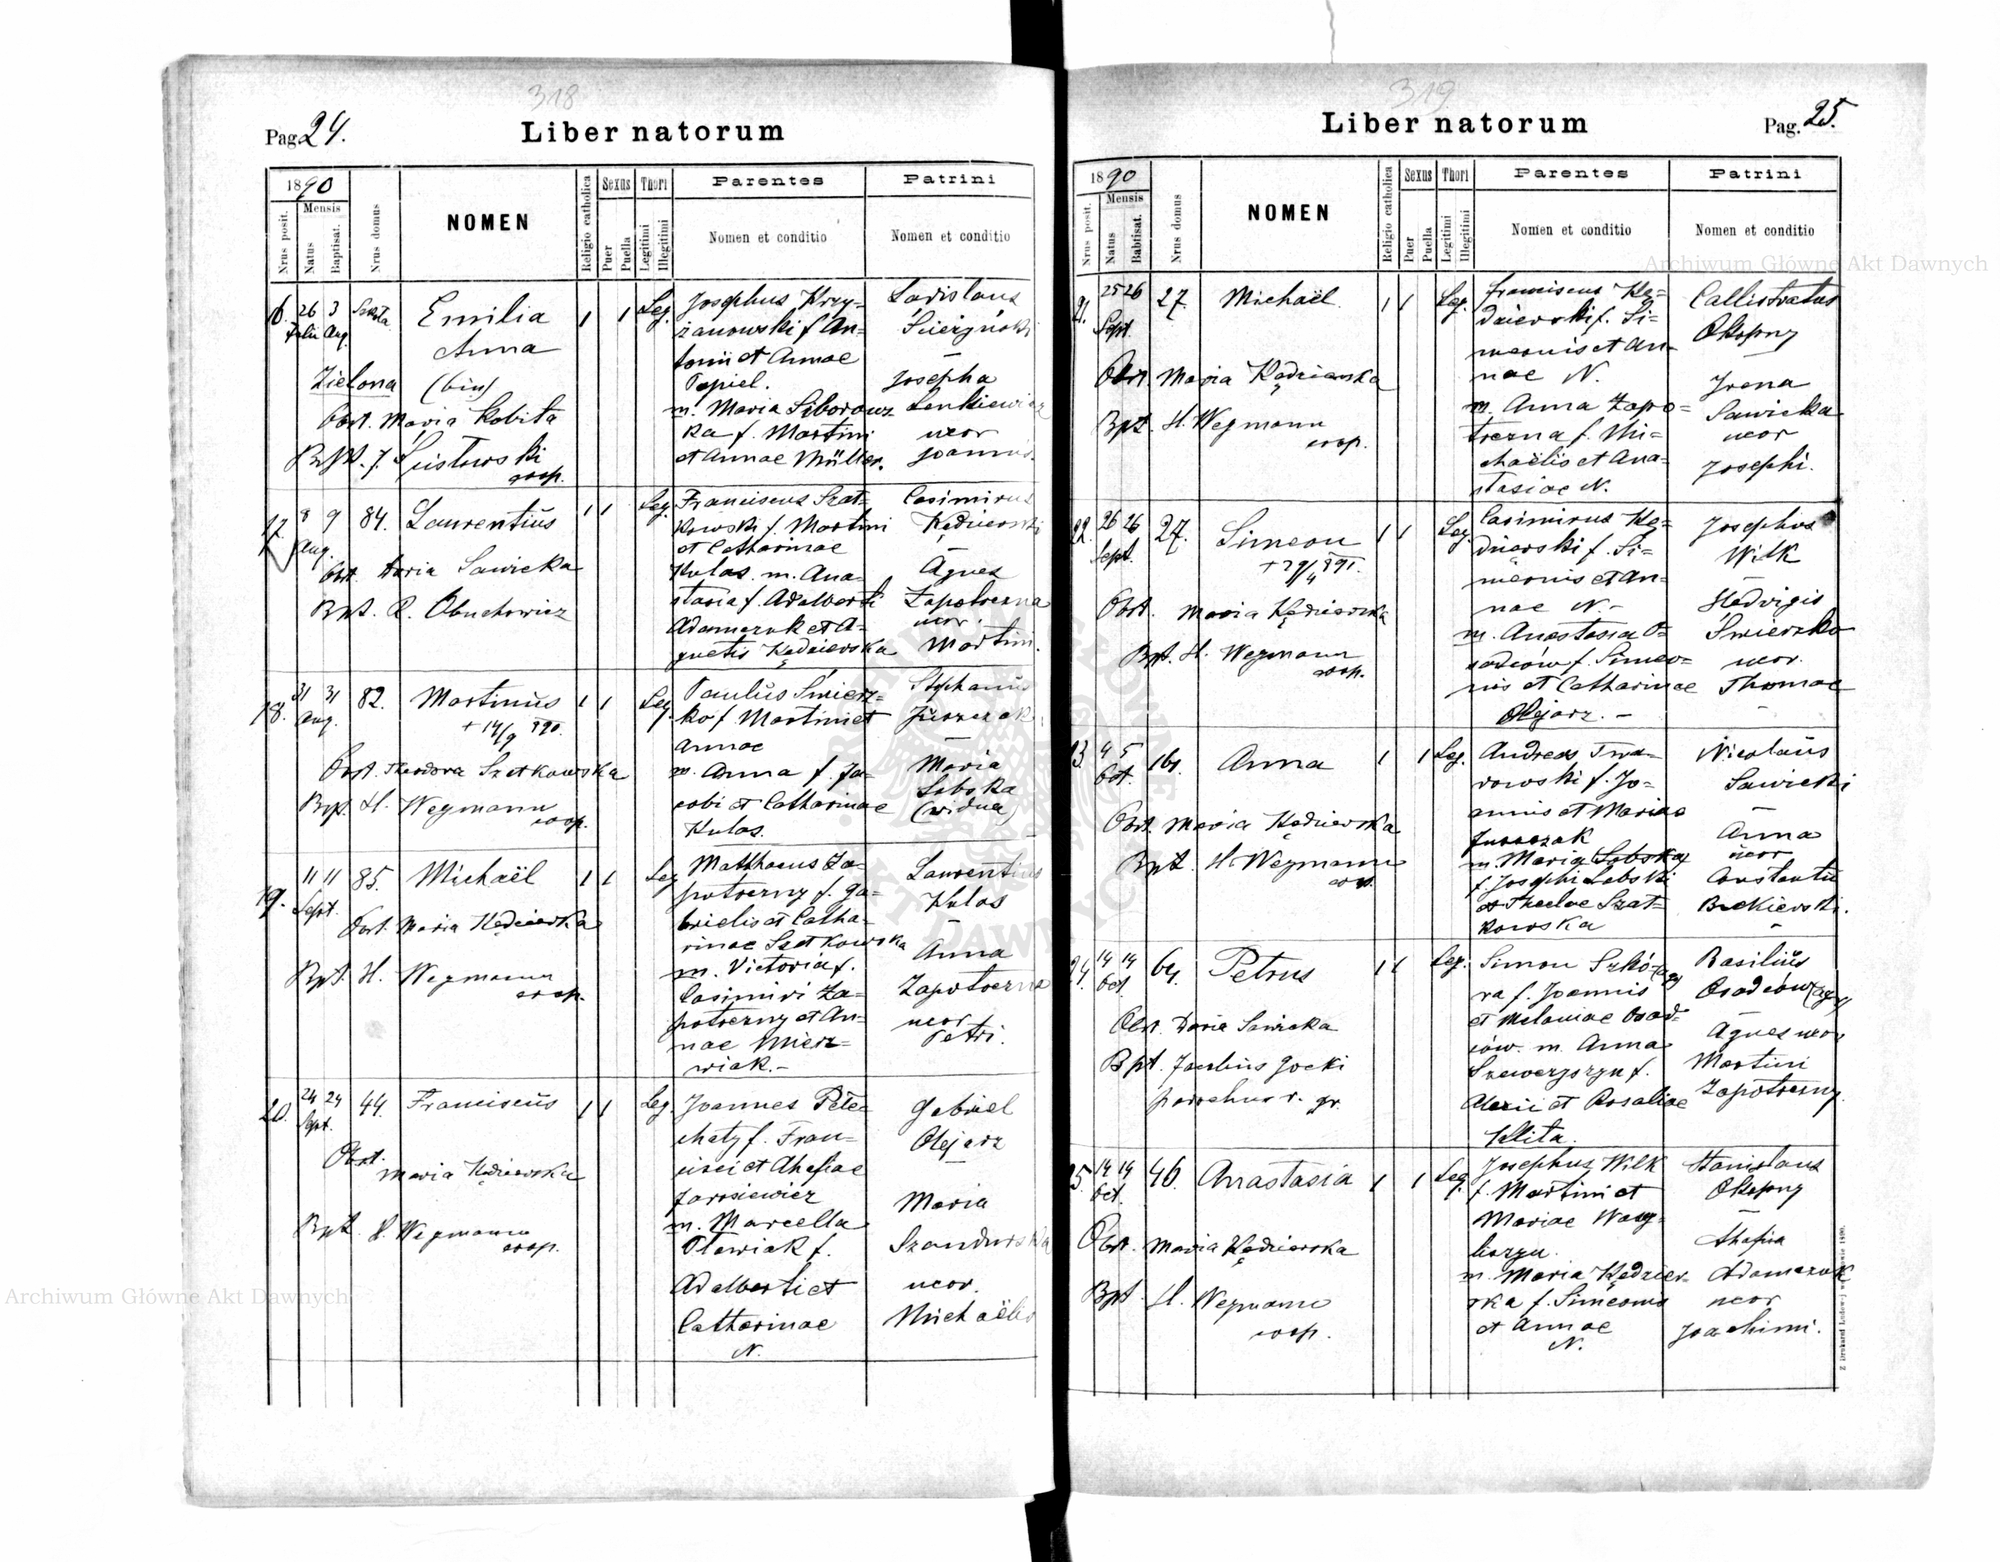 318
Pag. 24.
Liber natorum
1890
Mensis
Nrus posit.
Natus
Baptisat.
Nrus domus
NOMEN
Religio catholica
Sexus
Puer
Puella
Thori
Legitimi
Illegitimi
Parentes
Nomen et conditio
Patrini
Nomen et conditio
26 3
Julii Aug.
Emilia
Anna
Zielona (bin)
Obst. Maria Kobita
Bpt. J.
coop.
1 1 Leg.
Josephus Krzy-
żanowski f. An-
tonii et Annae
Popiel.
m. Maria Siborowz
ka f. Martini
et Annae Müller.
Ladislaus
–
Josepha
Lenkiewicz
uxor
Joannis.
17
8 9 84. Laurentius
Aug.
Obst. Daria Sawicka
Bpt. R. Obuchowicz
1 1 Leg.
Franciscus Szat-
kowski f. Martini
et Catharinae
Kulas. m. Ana-
stasia f. Adalberti
Adamczuk et A-
gnetis Kędzierska
Casimirus
Kędzierski
–
Agnes
Zapotoczna
uxor.
Martini.
18.
31 31 82. Martinus
Aug.
+ 14/9 890.
Obst. Theodora Szetkowska
Bpt. H. Wegmann
coop.
1 1 Leg.
Paulus Świerz-
ko f. Martini et
Annae
m. Anna f. Ja-
cobi et Catharinae
Kulas.
Stephanus
Juszczak.
–
Maria
Łobska
(vidua)
19.
11 11 85. Michaël
Sept.
Obst. Maria Kędzierska
Bpt. H. Wegmann
coop.
1 1 Leg.
Matthaeus Za-
potoczny f. Ga-
brielis et Catha-
rinae Szetkowska
m. Victoria f.
Casimiri Za-
potoczny et An-
nae Mierz-
wiak.–
Laurentius
Kulas
–
Anna
Zapotoczna
uxor
Petri.
20.
24 24 44. Franciscus
Sept.
Obst.
Maria Kędzierska
Bpt. H. Wegmann
coop.
1 1 Leg.
Joannes Pete-
chaty f. Fran-
cisci et Ahafiae
Jarosiewicz
m. Marcella
Olewiak f.
Adalberti et
Catharinae
N.
Gabriel
Olejarz
–
Maria
Szandurska
uxor.
Michaëlis
319
Liber natorum
Pag. 25.
1890
Mensis
Nrus posit.
Natus
Babtisat.
Nrus domus
NOMEN
Religio catholica
Sexus
Puer
Puella
Thori
Legitimi
Illegitimi
Parentes
Nomen et conditio
Patrini
Nomen et conditio
21.
25 26 27. Michaël
Sept.
Obst. Maria Kędzierska
Bpt. H. Wegmann
coop.
1 1 Leg.
Franciscus Kę-
dzierski f. Si-
meonis et An-
nae N.
m. Anna Zapo-
toczna f. Mi-
chaëlis et Ana-
stasiae N.
Callistratus
Okopny
–
Irena
Sawicka
uxor
Josephi.
22.
26 26 27. Simeon
Sept.
+ 29/4 891.
Obst. Maria Kędzierska
Bpt. H. Wegmann
coop.
1 1 Leg.
Casimirus Kę-
dzierski f. Si-
meonis et An-
nae N.–
m. Anastasia O-
sadców f. Simeo-
nis et Catharinae
Olejarz. –
Josephus
Wilk
–
Hedvigis
Świerzko
uxor.
Thomae
–
4 5 161. Anna
Oct.
Obst. Maria Kędzierska
Bpt. H. Wegmann
coop.
1 1 Leg.
Andreas Twa-
rowski f. Jo-
annis et Mariae
Juszczak
m. Maria Łobska
f. Josephi Łobski
et Theclae Szat-
kowska
Nicolaus
Sawicki
–
Anna
uxor
Constantii
–
24.
14 14 64. Petrus
Oct.
Obst. Daria Sawicka
Bpt. Jacobus Gocki
parochus r. gr.
1 1 Leg.
Simon Szkó-
ra f. Joannis
et Melaniae Osad-
ców. m. Anna
f.
Alexii et Rosaliae
Klita.
Basilius
Osadców
–
Agnes uxor
Martini
Zapotoczny.
25.
14 19 46. Anastasia
Oct.
Obst. Maria Kędzierska
Bpt. H. Wegmann
coop.
1 1 Leg.
Josephus Wilk
f. Martini et
Mariae Wasy-
liszyn.
m. Maria Kędzier-
ska f. Simeonis
et Annae
N.
Stanislaus
Okopny
–
Ahafia
Adamczuk
uxor
Joachimi.
Archiwum Główne Akt Dawnych
Archiwum Główne Akt Dawnych